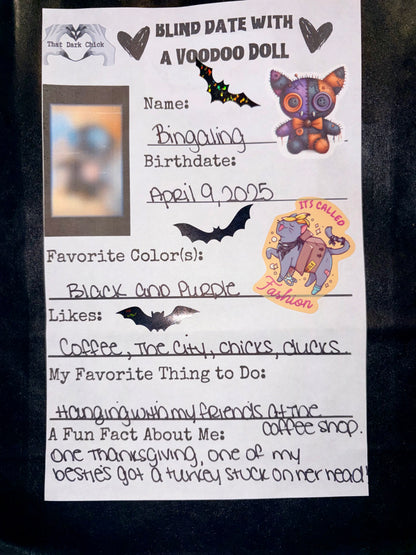 That Dark Chick
BLIND DATE WITH
A VOODOO DOLL
Name:
Bingaling
Birthdate:
April 9, 2025
IT'S CALLED
Fashion
Favorite Color(s):
Black and Purple
Likes:
Coffee, The City, chicks, ducks.
My Favorite Thing to Do:
Hanging with my friends at the
coffee shop.
A Fun Fact About Me:
One Thanksgiving, one of my
besties got a turkey stuck on her head!